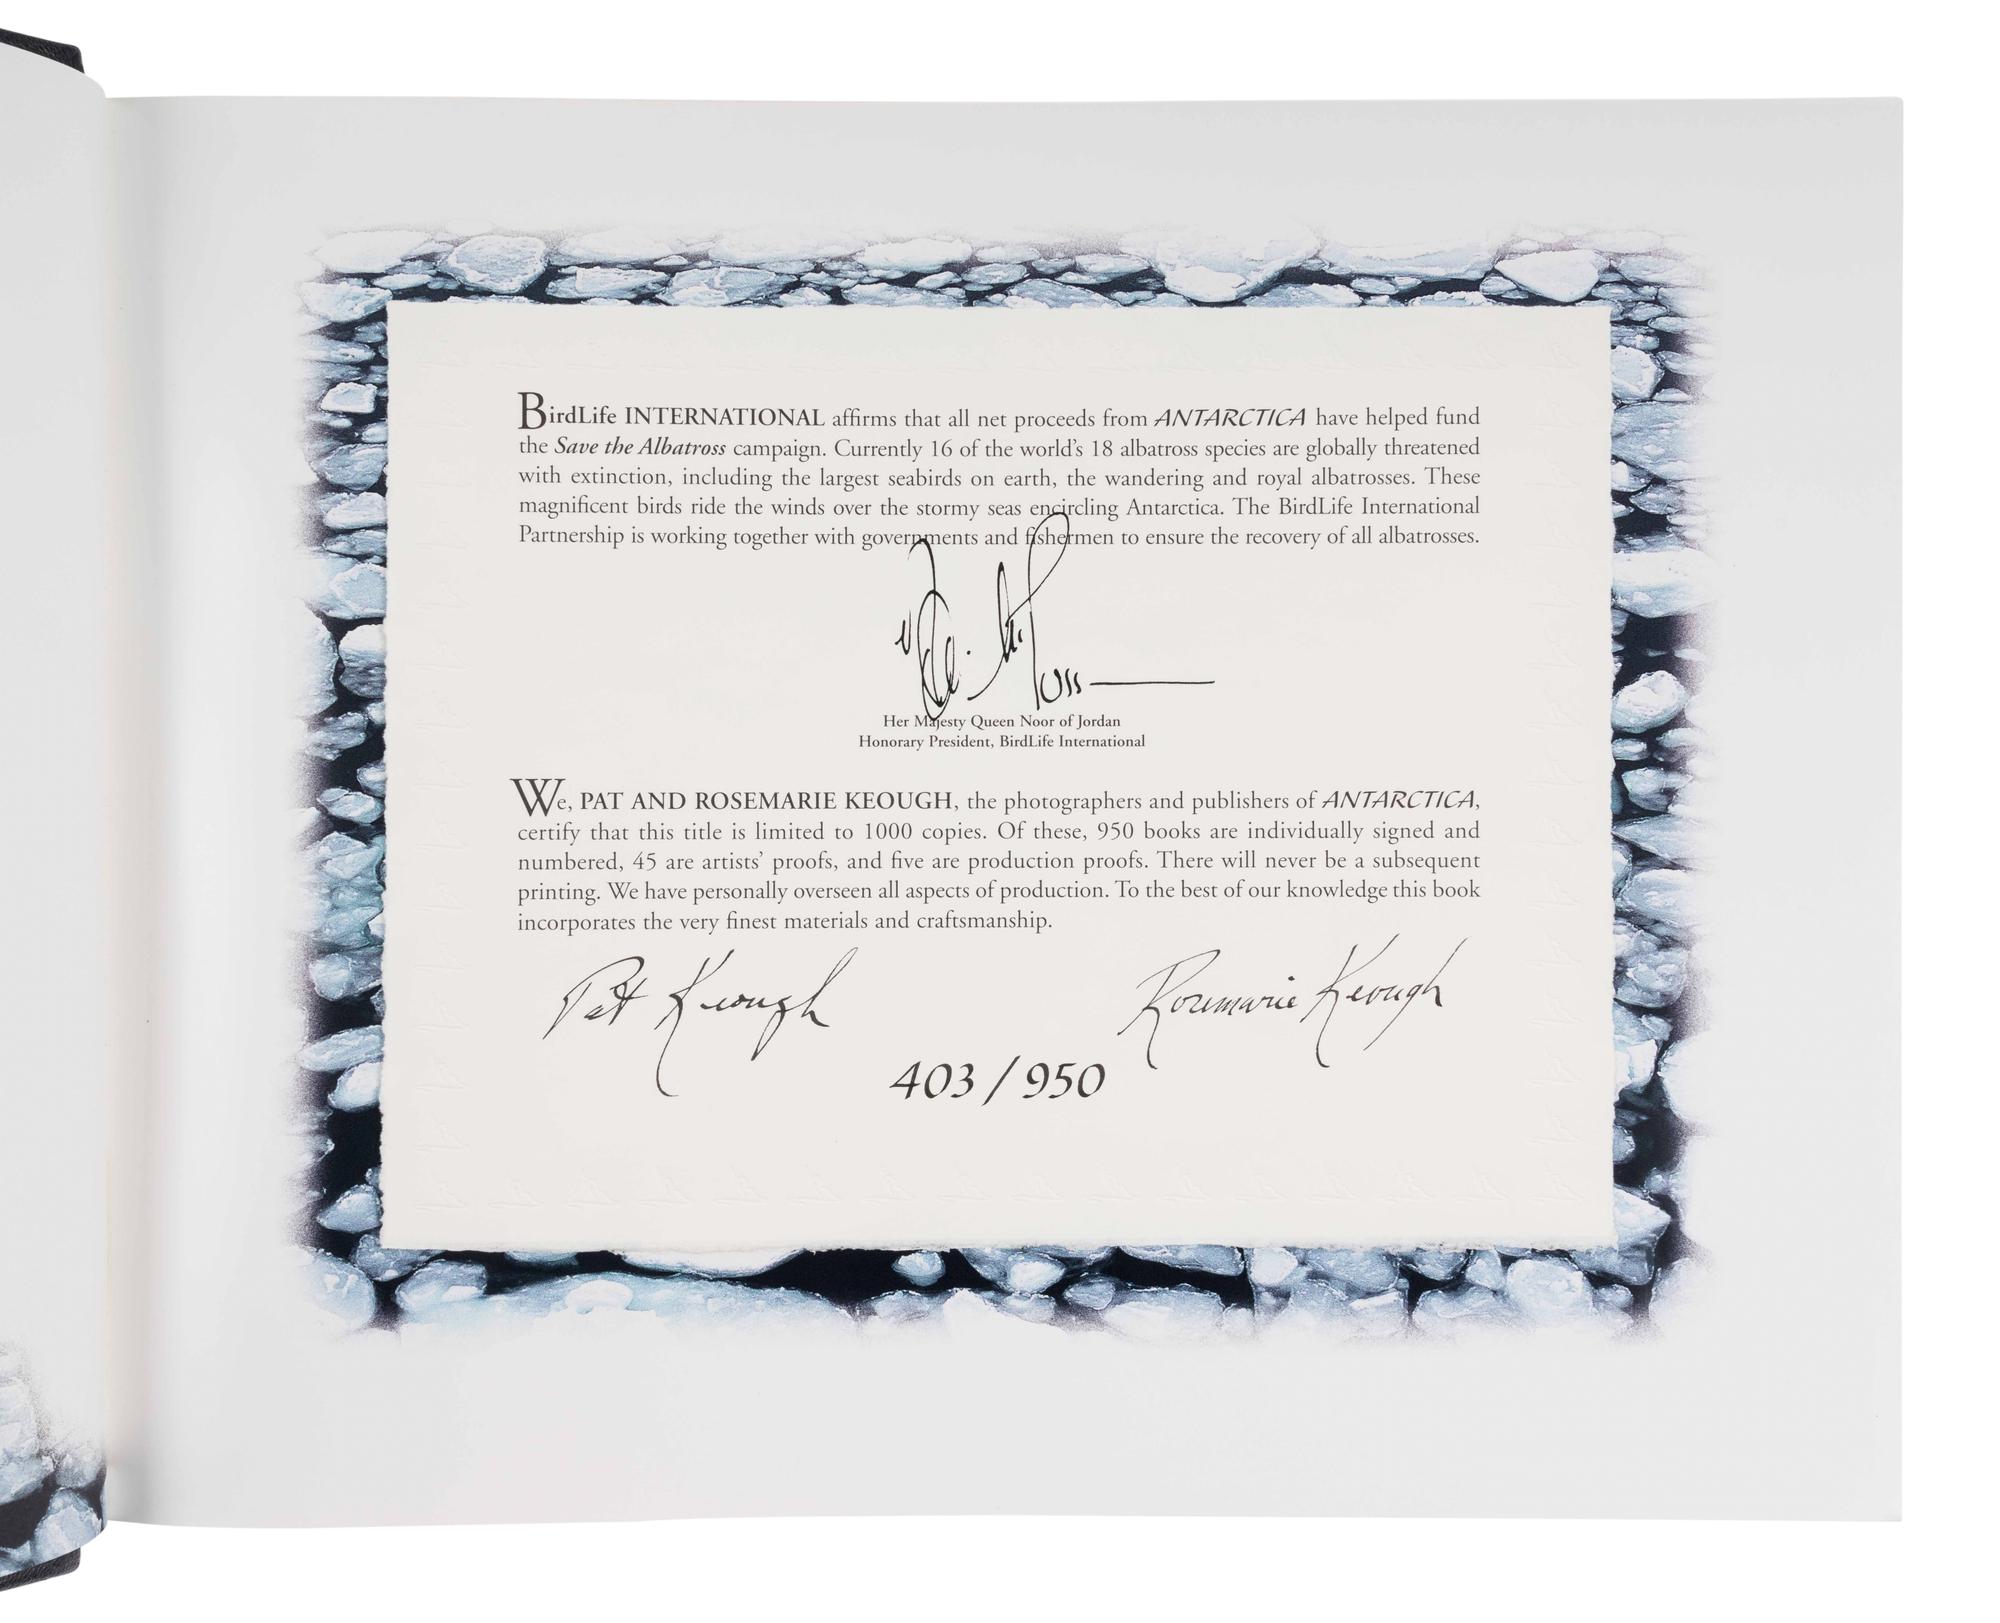 BirdLife INTERNATIONAL affirms that all net proceeds from ANTARCTICA have helped fund
the Save the Albatross campaign. Currently 16 of the world’s 18 albatross species are globally threatened
with extinction, including the largest seabirds on earth, the wandering and royal albatrosses. These
magnificent birds ride the winds over the stormy seas encircling Antarctica. The BirdLife International
Partnership is working together with governments and fishermen to ensure the recovery of all albatrosses.
Her Majesty Queen Noor of Jordan
Honorary President, BirdLife International
We, PAT AND ROSEMARIE KEOUGH, the photographers and publishers of ANTARCTICA,
certify that this title is limited to 1000 copies. Of these, 950 books are individually signed and
numbered, 45 are artists’ proofs, and five are production proofs. There will never be a subsequent
printing. We have personally overseen all aspects of production. To the best of our knowledge this book
incorporates the very finest materials and craftsmanship.
Pat Keough Rosemarie Keough
403/950